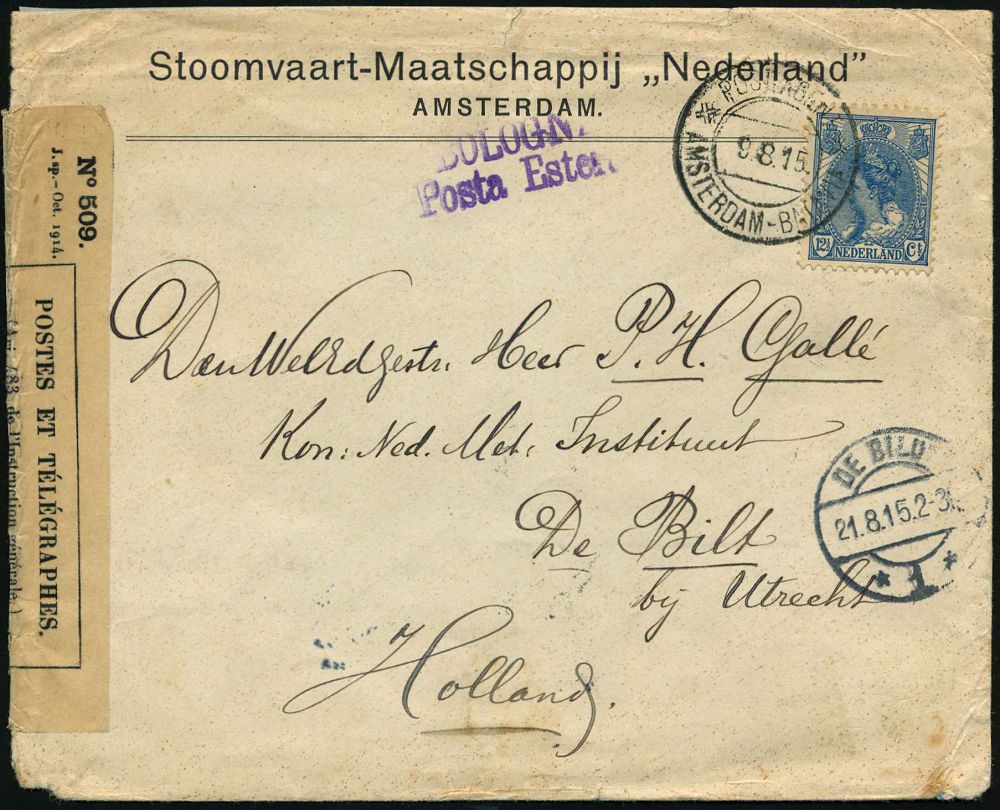 Stoomvaart-Maatschappij „Nederland”
AMSTERDAM.
BOLOGN
Posta Ester
AMSTERDAM-BATAVIA
9.8.15.
12½ NEDERLAND Ct
No 509.
J. sp.—Oct. 1914.
POSTES ET TÉLÉGRAPHES.
483 de l'Instruction générale.)
Den WelEdgestr. Heer P. H. Gallé
Kon: Ned. Met. Instituut
De Bilt
bij Utrecht
Holland.
DE BILT
21.8.15.2-3
1